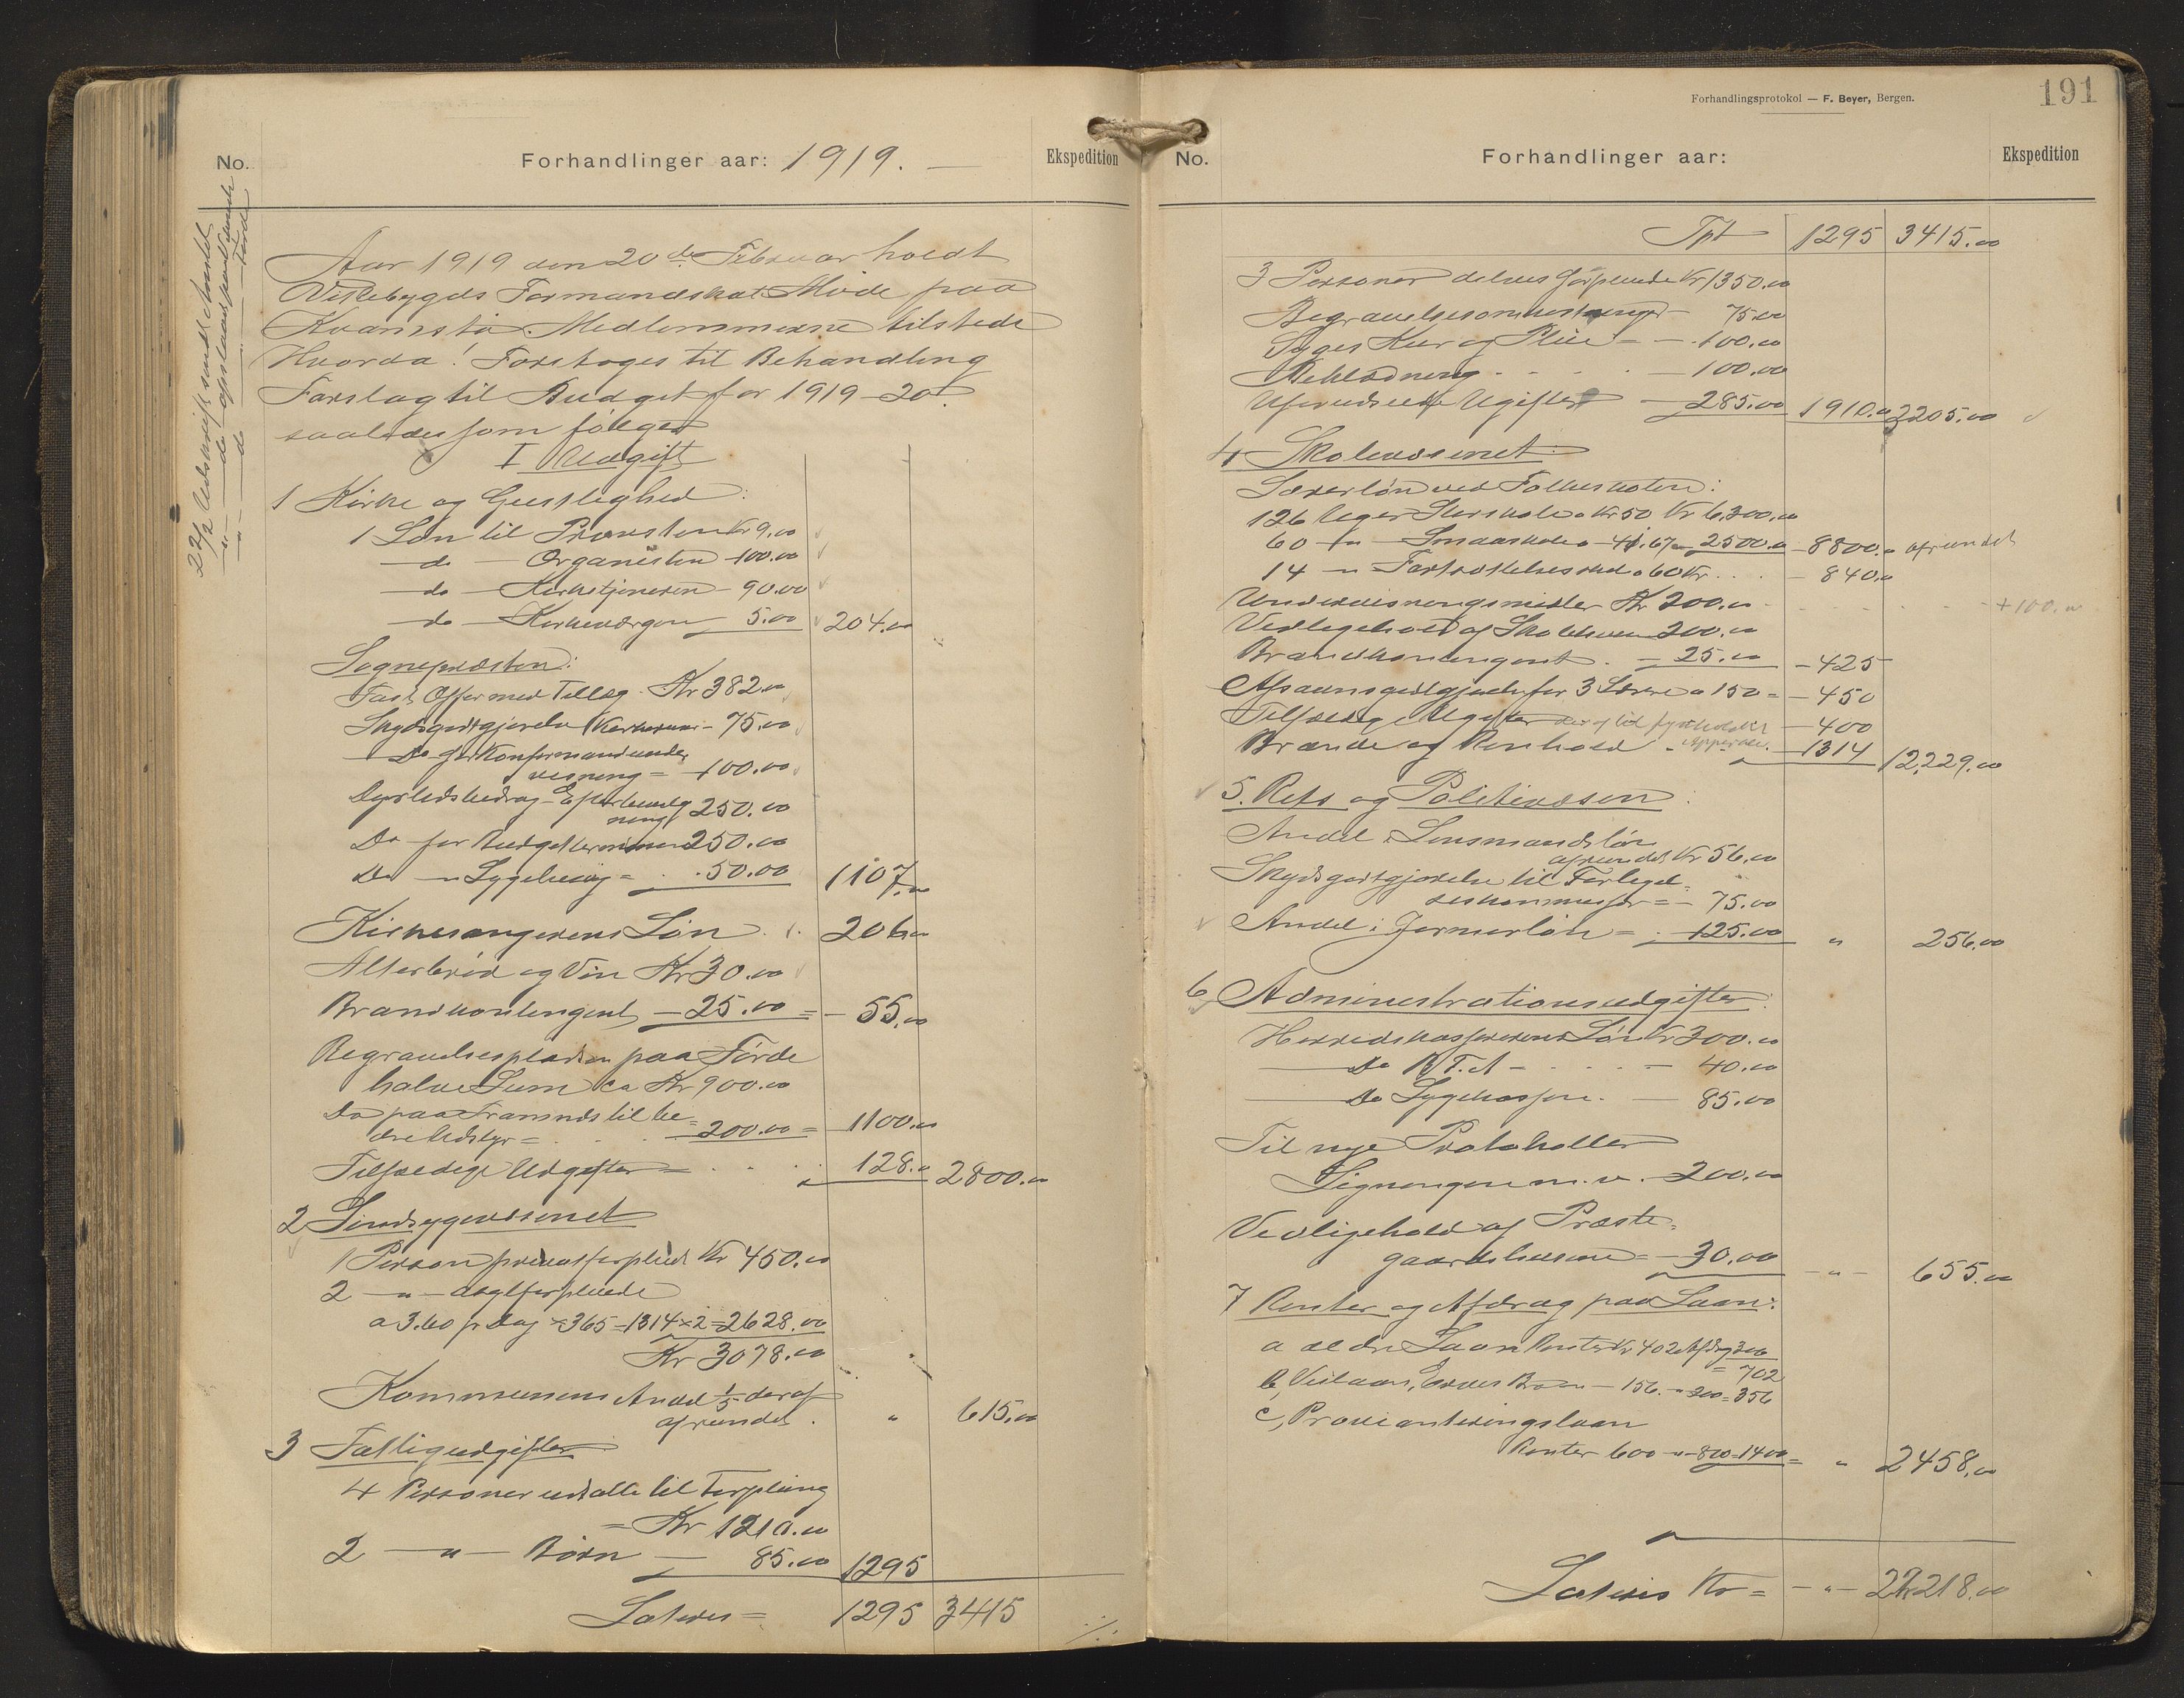 No.
Forhandlinger aar: 1919. —
Ekspedition
22/2 Udskrift sendt
— " — do opslaaet
— " — do Førde
Aar 1919 den 20de Februar holdt
Vikebygds Formandskab Møde paa
Kvamstø. Medlemmerne tilstede
Hvorda! Foretoges til Behandling
Forslag til Budget for 1919–20
saaledes som følger
I Udgift
1 Kirke og Geistlighed:
1 Løn til Præsten Kr 9.00
— do — Organisten — 100.00
— do — Kirketjeneren — 90.00
— do — Kirkeværgen 5.00 204.00
Sognepræsten:
Fast Offer med Tillæg. Kr 382.00
Skydsgodtgjørelse — 75.00
Do for Konfirmandunder
visning = 100.00
Dyrtidsbidrag 250.00
Do for Budgetterminen 250.00
Do — " Sygebesøg = . . 50.00 1107.00
Kirkesangerens Løn . . 206.00
Alterbrød og Vin Kr 30.00
Brandkontingent — 25.00 = — 55.00
Begravelsespladsen paa Førde
halve Sum ca Kr 900.00
Do paa Framnæs til be-
200.00 = 1100.00
Tilfældige Udgifter = . . . 128.00 2800.00
2 Sindsygevæsenet
1 Person privatforpleiet Kr 450.00
2 — " — asylforpleiede
a 3.60 pr Dag × 365 = 1314 × 2 = 2628.00
Kr 3078.00
Kommunens Andel 1/5 deraf
afrundet . " 615.00
3 Fattigudgifter
4 Personer udsatte til Forpleining
= Kr 1210.00
2 — " — Børn — 85.00 1295
Lateris = 1295 3415
./.
Forhandlingsprotokol — F. Beyer, Bergen.
191
No.
Forhandlinger aar:
Ekspedition
Tpt 1295 3415.00
3 Personer delvis forpleiede Kr 1350.00
Begravelsesomkostninger — 75.00
Syges Kur og Pleie — — 100.00
Beklædning . - - . — 100.00
Uforudseede Udgifter — 285.00 1910.00 3205.00
4 Skolevæsenet:
Lærerløn ved Folkeskolen:
126 Uger Storskole a Kr 50 Kr 6,300.00
60 — " — Smaaskole a — 41.67 = 2500.00 — 8800.00 afrundet
14 — " Fortsættelsesskole a 60 Kr . . — 840.00
Undervisningsmidler Kr 200.00 - - - - - +100.00
Vedligehold af Skolehusene 200.00
Brandkontingent . — 25.00 — 425
Afsavnsgodtgjørelse for 3 Lærere a 150 = — 450
Tilfældige Udgifter — 400
Brænde og Renhold — 1314 12,229.00
5. Rets og Politivæsen:
Andel i Lensmandsløn
afrundet Kr 56.00
Skydsgodtgjørelse til Forligel-
seskommissær = — 75.00
Andel i Jormorløn = . 125.00 " 256.00
6 Administrationsudgifter:
Herredskassererens Løn Kr 300.00
— Do — . . . — 40.00
— Do Sygekassen . — 85.00
Til nye Protokoller
Ligningen m. v. — 200.00
Vedligehold af Præste-
gaardshusene = — 30.00 — " — 655.00
7 Renter og Afdrag paa Laan:
a ældre Laan Renter Kr 402 Afdrag 300
= 702
b, Veilaan, — 156. — " 200 = 356
c, Provianteringslaan
Renter 600 — " — 800 = 1400 = " 2458.00
Lateris Kr = — " — 22,218.00